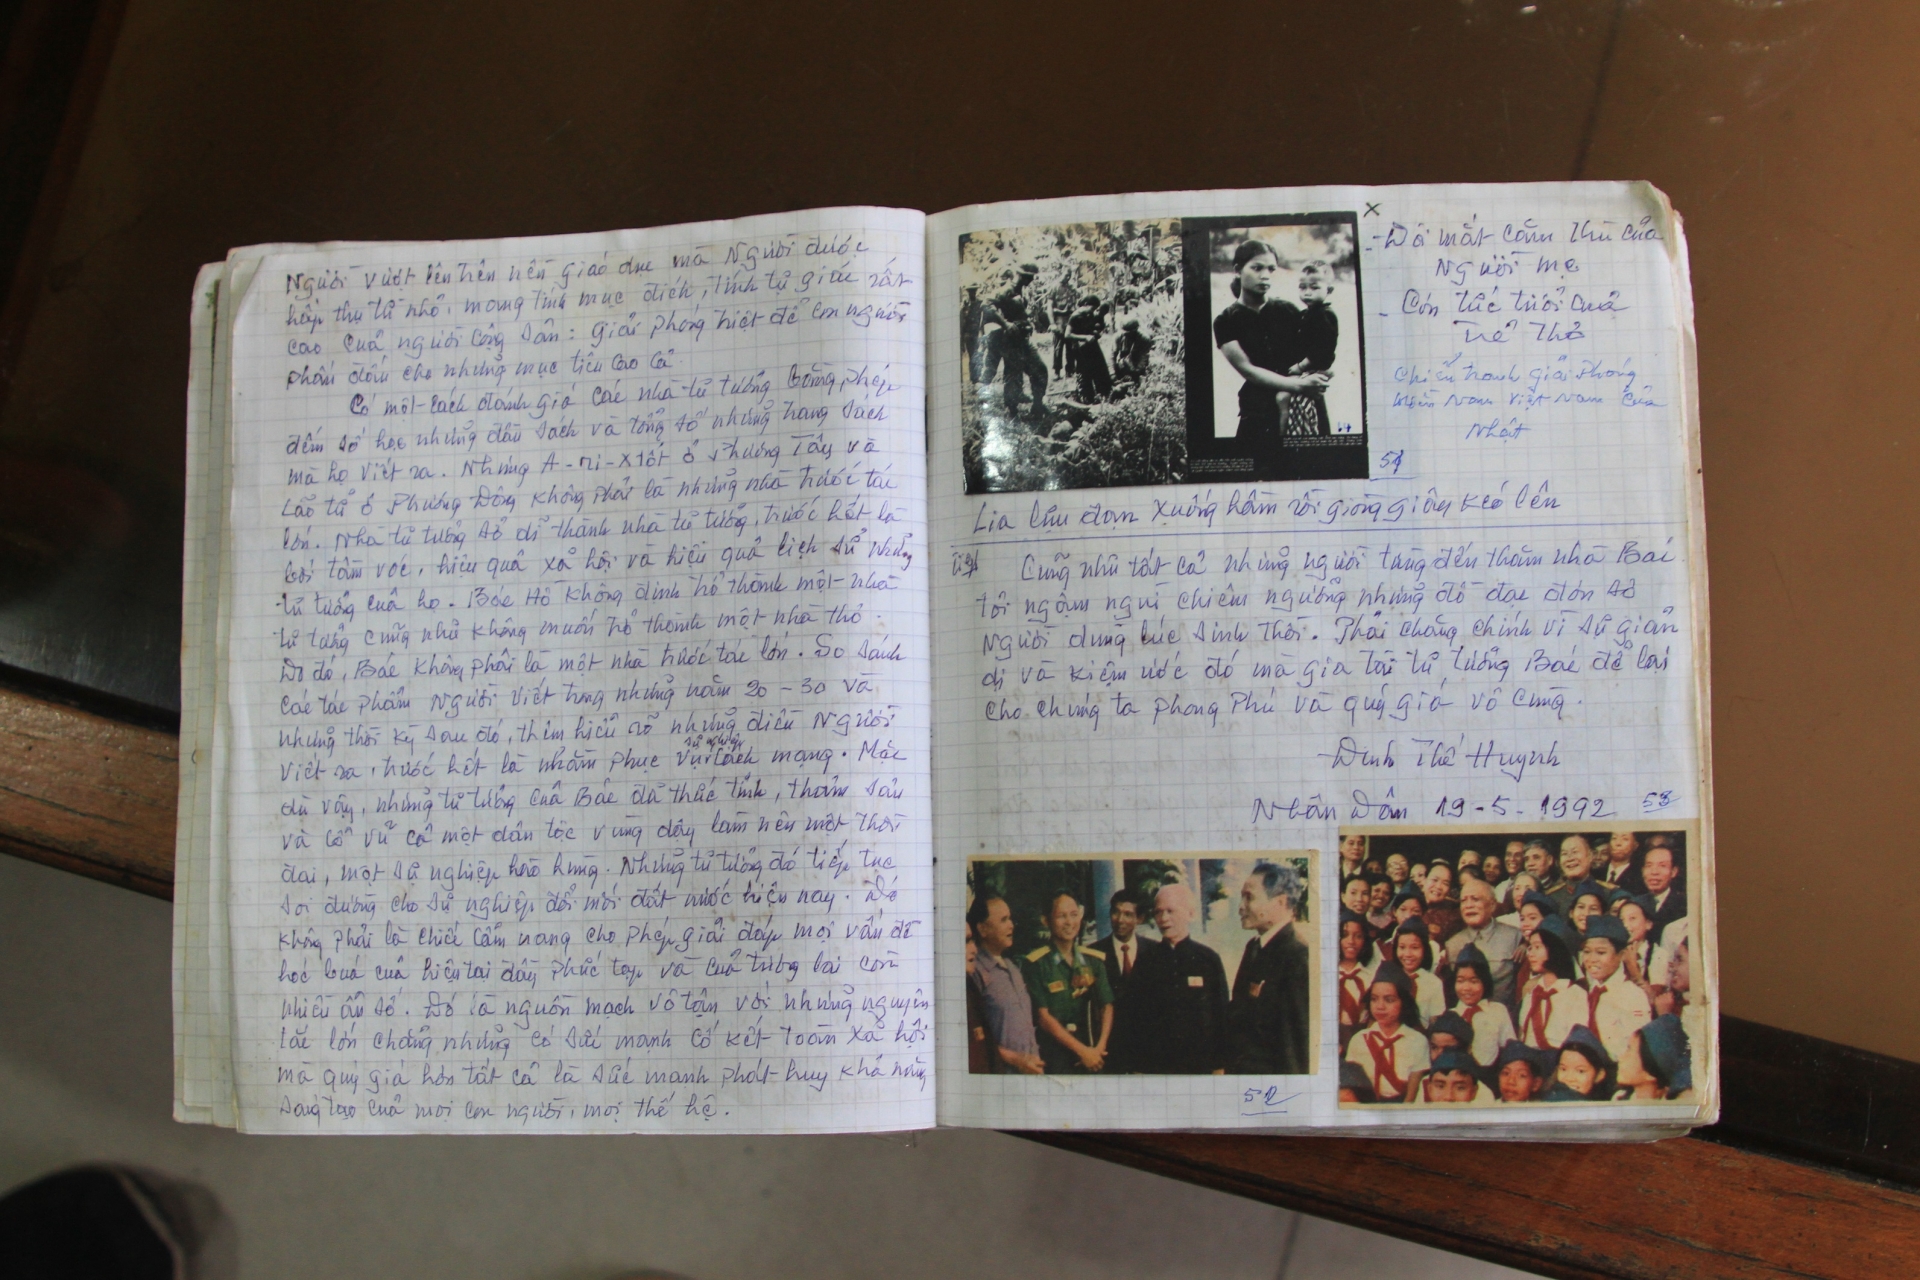 Người vượt lên trên nền giáo dục mà Người được
hấp thụ từ nhỏ, mang tính mục đích, tính tự giác rất
cao của người cộng sản: giải phóng triệt để con người
phấn đấu cho những mục tiêu cao cả.
Có một cách đánh giá các nhà tư tưởng bằng phép
đếm số học những đầu sách và tổng số những trang sách
mà họ viết ra. Nhưng A-ri-xtôt ở Phương Tây và
Lão tử ở Phương Đông không phải là những nhà trước tác
lớn. Nhà tư tưởng sở dĩ thành nhà tư tưởng, trước hết là
bởi tầm vóc, hiệu quả xã hội và hiệu quả lịch sử những
tư tưởng của họ. Bác Hồ không định trở thành một nhà
tư tưởng cũng như không muốn trở thành một nhà thơ.
Do đó, Bác không phải là một nhà trước tác lớn. So sánh
các tác phẩm Người viết trong những năm 20-30 và
những thời kỳ sau đó, thêm hiểu rõ những điều Người
viết ra, trước hết là nhằm phục vụ sự nghiệp cách mạng. Mặc
dù vậy, những tư tưởng của Bác đã thức tỉnh, thấm sâu
và cổ vũ cả một dân tộc vùng dậy làm nên một thời
đại, một sự nghiệp hào hùng. Những tư tưởng đó tiếp tục
soi đường cho sự nghiệp đổi mới đất nước hiện nay. Đó
không phải là chiếc cẩm nang cho phép giải đáp mọi vấn đề
hóc búa của hiện tại đầy phức tạp và của tương lai còn
nhiều ẩn số. Đó là nguồn mạch vô tận với những nguyên
tắc lớn chẳng những có sức mạnh cố kết toàn xã hội
mà quý giá hơn tất cả là sức mạnh phát huy khả năng
sáng tạo của mọi con người, mọi thế hệ.
x
- Đôi mắt căm thù của
Người mẹ
- Còn tức tưởi của
trẻ thơ
Chiến tranh giải phóng
Miền Nam Việt Nam của
Nhật
51
Lia lựu đạn xuống hầm rồi giòng giây kéo lên
Cũng như tất cả những người từng đến thăm nhà Bác
tôi ngậm ngùi chiêm ngưỡng những đồ đạc đơn sơ
Người dùng lúc sinh thời. Phải chăng chính vì sự giản
dị và kiệm ước đó mà gia tài tư tưởng Bác để lại
cho chúng ta phong phú và quý giá vô cùng.
Đinh Thế Huynh
Nhân Dân 19-5-1992
53
52